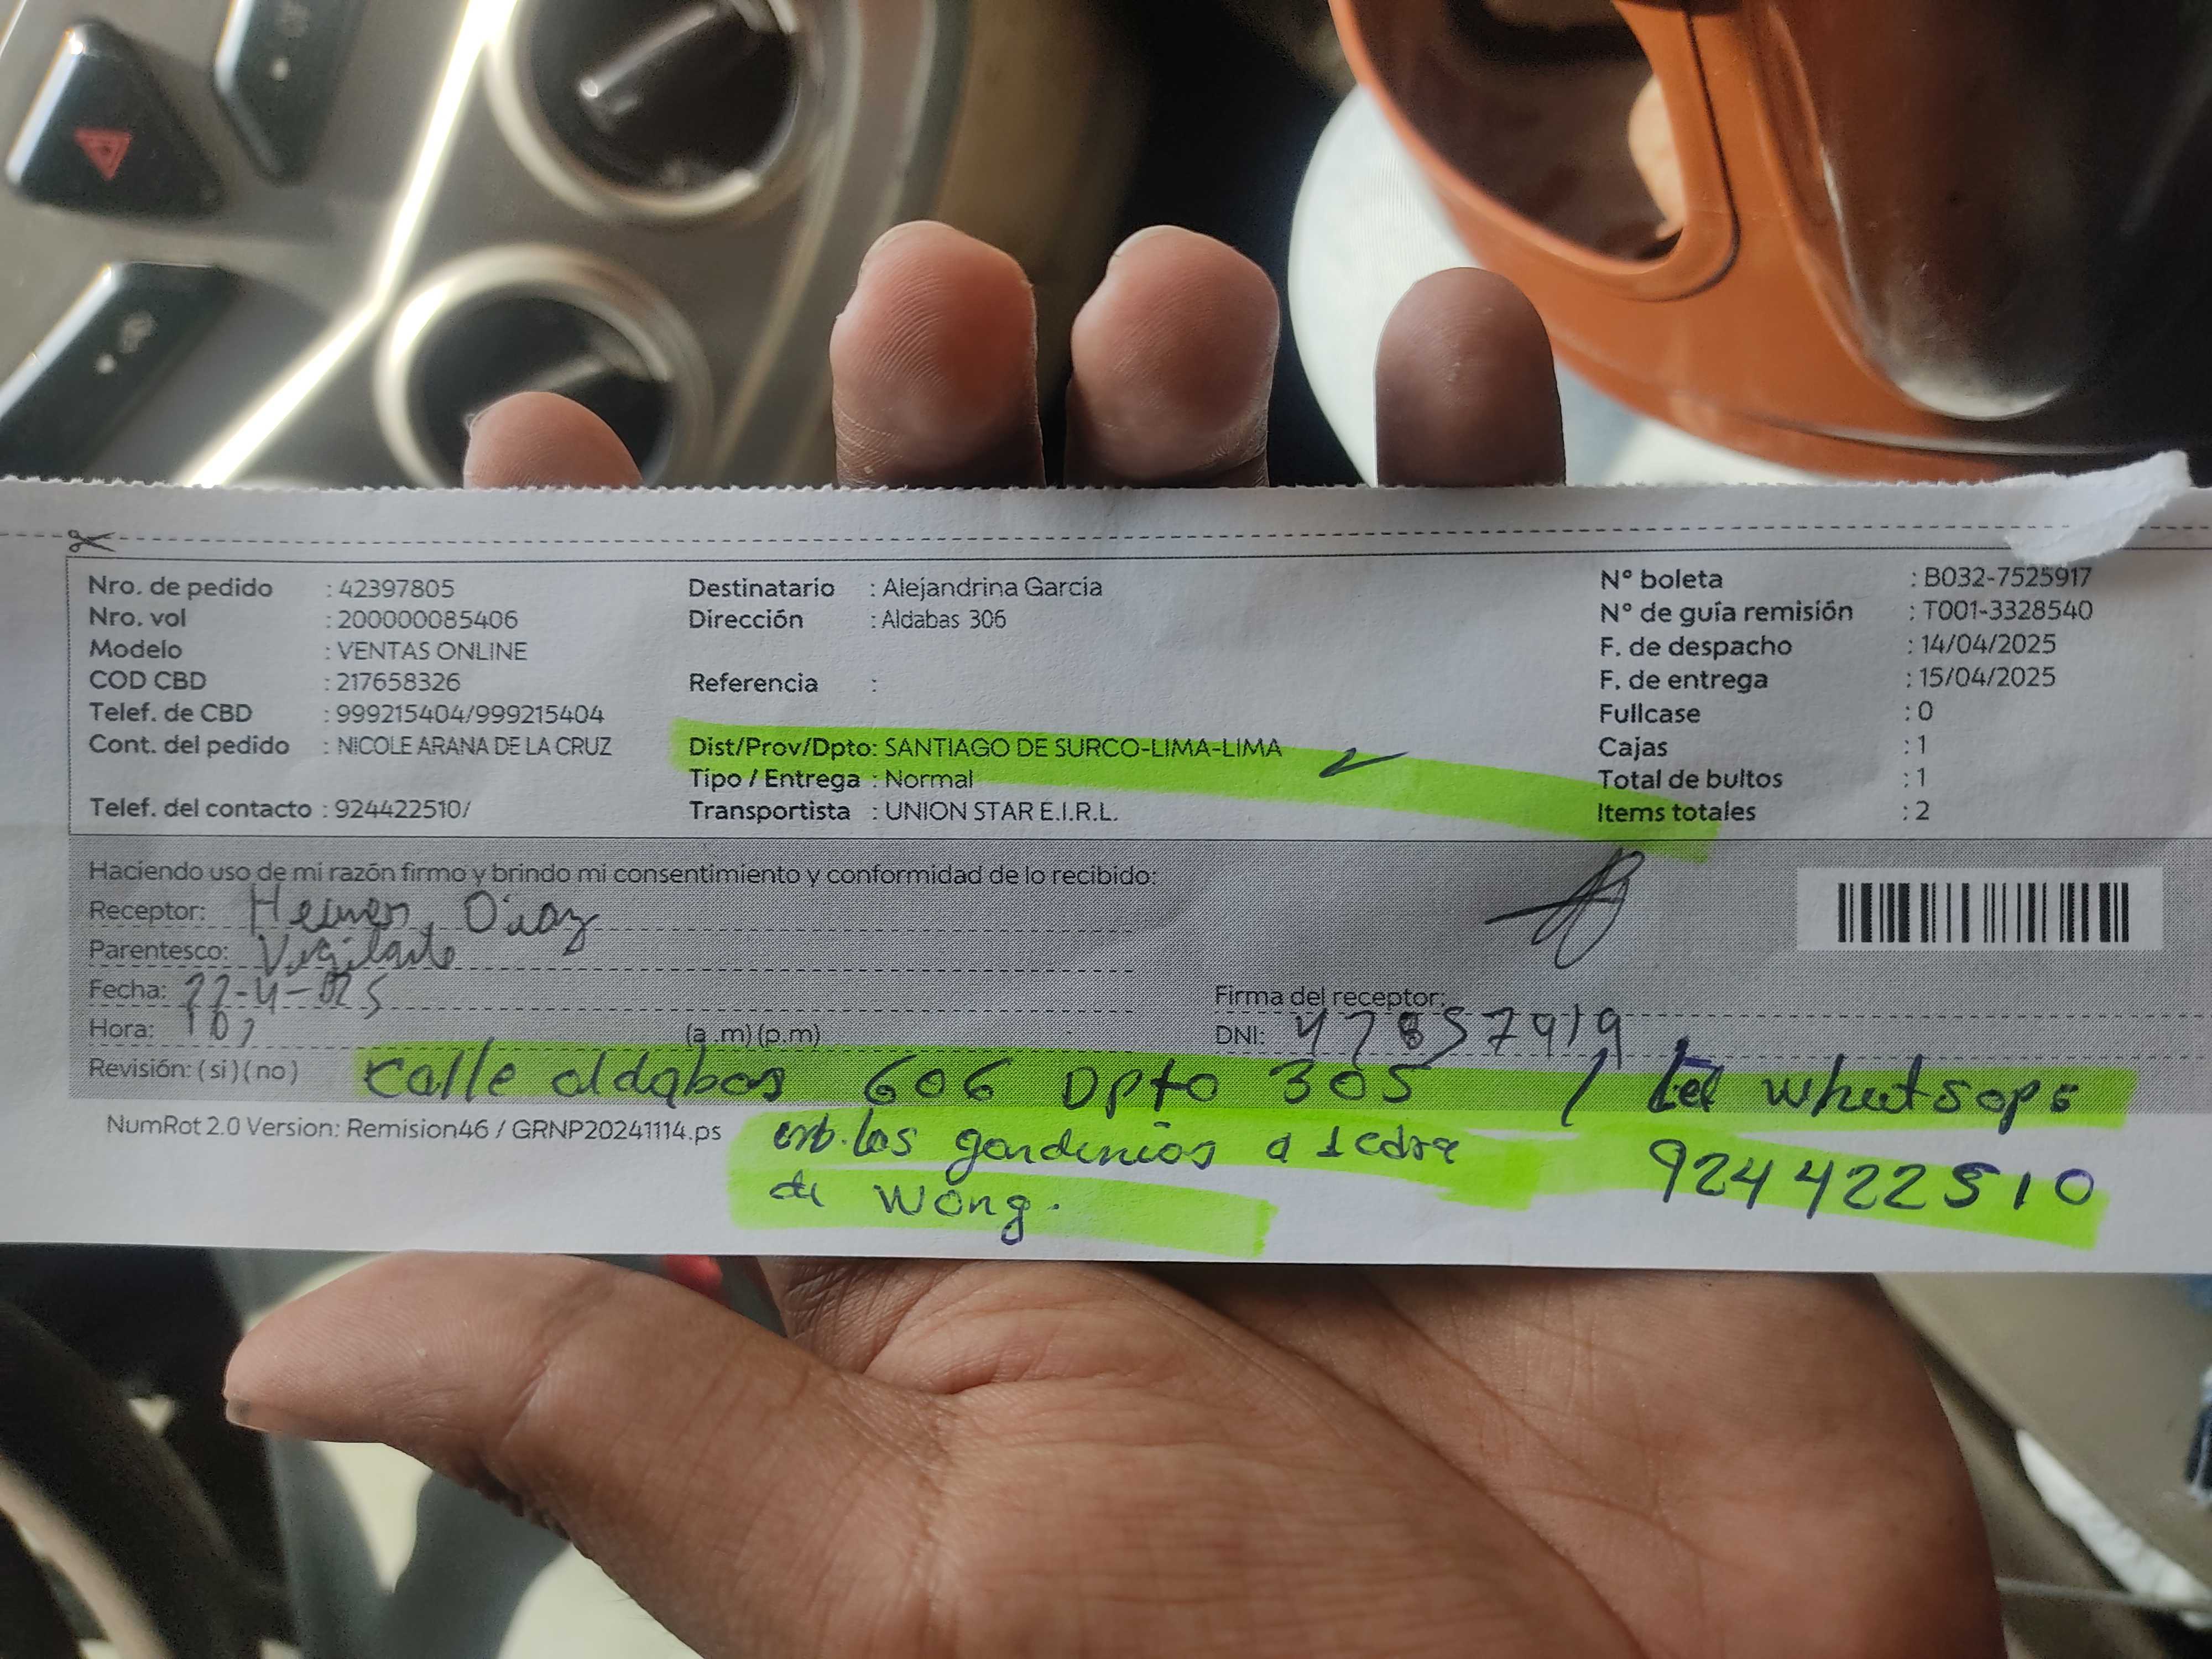 Nro. de pedido : 42397805
Nro. vol : 200000085406
Modelo : VENTAS ONLINE
COD CBD : 217658326
Telef. de CBD : 999215404/999215404
Cont. del pedido : NICOLE ARANA DE LA CRUZ
Telef. del contacto : 924422510/
Destinatario : Alejandrina García
Dirección : Aldabas 306
Referencia :
Dist/Prov/Dpto: SANTIAGO DE SURCO-LIMA-LIMA
Tipo / Entrega : Normal
Transportista : UNION STAR E.I.R.L.
N° boleta : B032-7525917
N° de guía remisión : T001-3328540
F. de despacho : 14/04/2025
F. de entrega : 15/04/2025
Fullcase : 0
Cajas : 1
Total de bultos : 1
Items totales : 2
Haciendo uso de mi razón firmo y brindo mi consentimiento y conformidad de lo recibido:
Receptor: Diaz
Parentesco: Vigilante
Fecha: 22-4-025
Hora: (a .m) (p.m)
Firma del receptor:
DNI:
Revisión: (si) (no) Calle aldabas 606 Dpto 305 / tel whatsops
NumRot 2.0 Version: Remision46 / GRNP20241114.ps
urb. las gardenias a 1 cdra 924422510
de Wong.